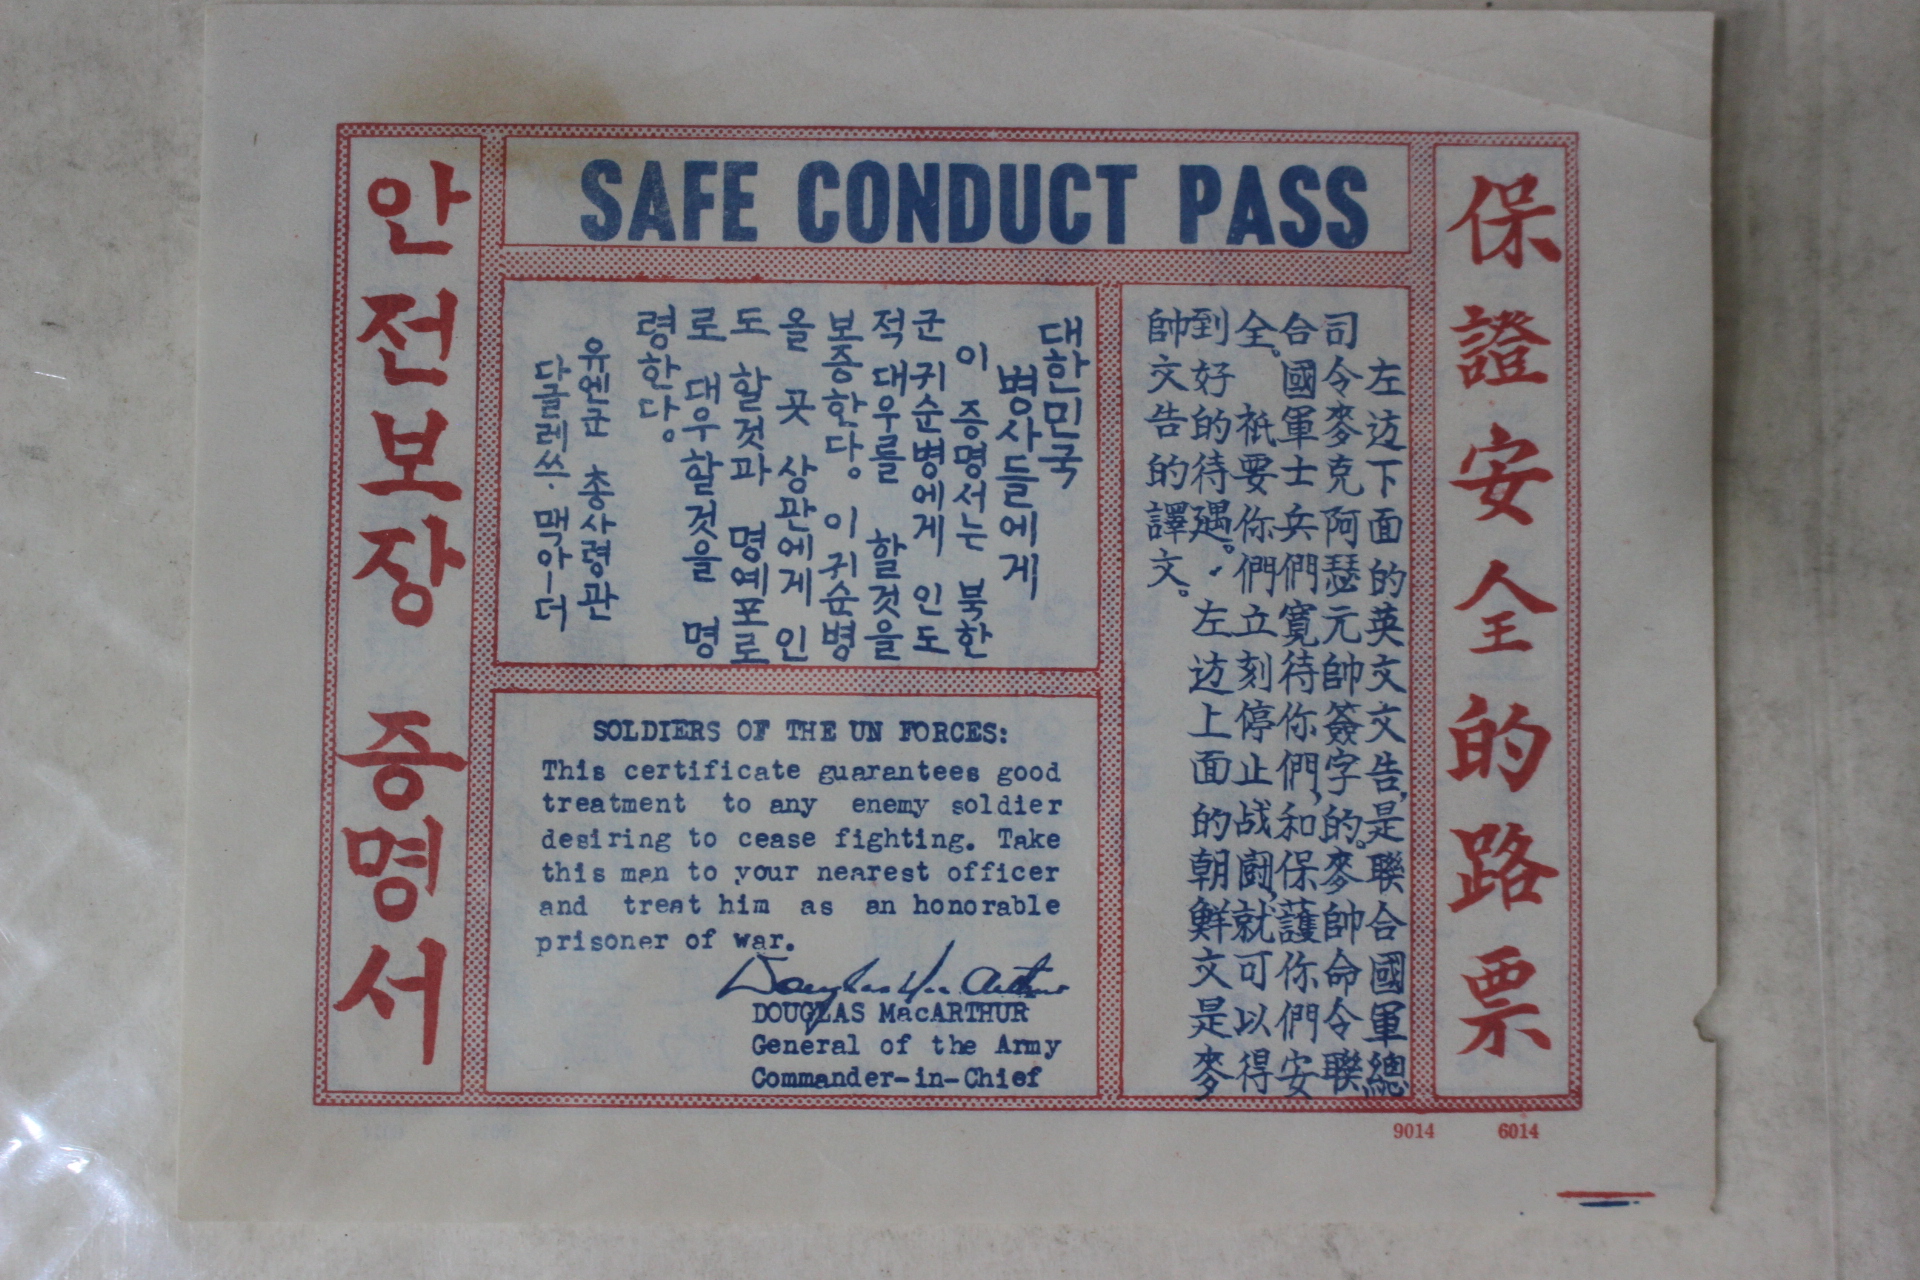 안전보장 증명서
SAFE CONDUCT PASS
保證安全的路票
대한민국
병사들에게
이 증명서는 북한
군 귀순병에게 인도
적 대우를 할것을
보증한다. 이 귀순병
을 곳 상관에게 인
도 할것과 명예포로
로 대우할것을 명
령한다.
유엔군 총사령관
다글레쓰·맥아ー더
左边下面的英文文告,是聯合國軍總
司令麥克阿瑟元帥簽字的。麥帥命令聯
合國軍士兵們寬待你們,和保護你們安
全。祇要你們立刻停止战闘,就可以得
到好的待遇。左边上面的朝鮮文是麥
帥文告的譯文。
SOLDIERS OF THE UN FORCES:
This certificate guarantees good
treatment to any enemy soldier
desiring to cease fighting. Take
this man to your nearest officer
and treat him as an honorable
prisoner of war.
Douglas MacArthur
DOUGLAS MacARTHUR
General of the Army
Commander-in-Chief
9014 6014